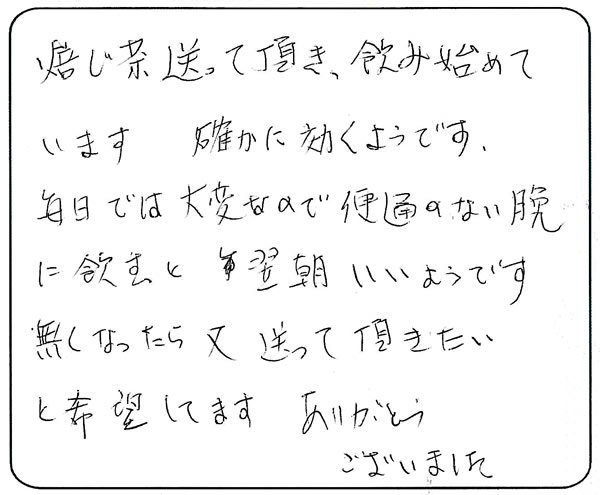 焙じ茶送って頂き、飲み始めて
います 確かに効くようです.
毎日では大変なので便通のない晩
に飲むと 翌朝 いいようです
無くなったら又 送って頂きたい
と希望してます ありがとう
ございました